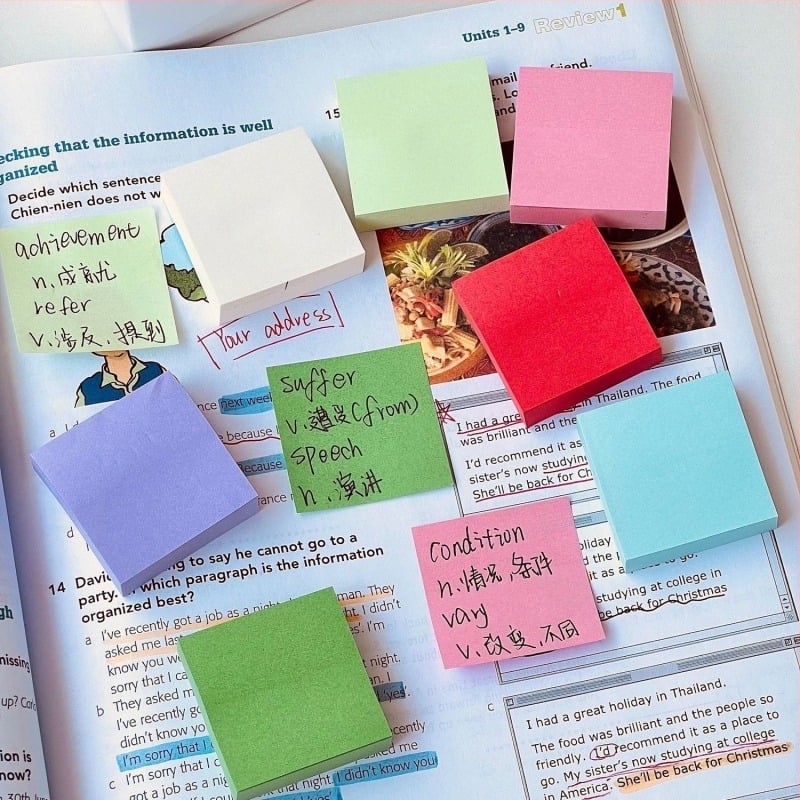 Units 1–9 Review1
mail
friend.
15
and
ecking that the information is well
ganized
Decide which sentence
Chien-nien does not w
achievement
n.成就
refer
v.涉及、提到
Your address
next week
because
Because
suffer
v.遭受(from)
speech
n.演讲
I had a gre in Thailand. The food
was brilliant and the
I'd recommend it as
sister's now studying
She'll be back for Ch
condition
n.情况,条件
vary
v.改变,不同
holiday
studying at college in
be back for Christmas
14 David ing to say he cannot go to a
party. In which paragraph is the information
organized best?
a I've recently got a job as a night man. They
asked me las I didn't
know you we I'm
sorry that I ca night.
b They asked m
I've recently go 'yes'.
didn't know yo
I'm sorry that I
c I'm sorry that I c asked me
got a job as a that night. I didn't know you
c I had a great holiday in Thailand.
The food was brilliant and the people so
friendly. I'd recommend it as a place to
go. My sister's now studying at college
in America. She'll be back for Christmas
missing
up?
ion is
now?
30th